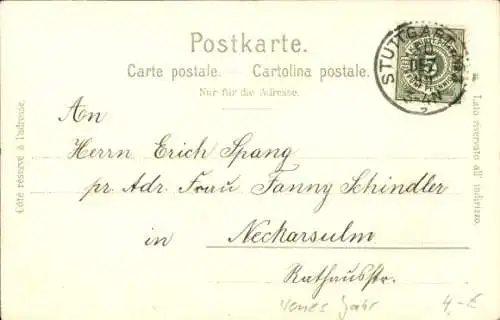 Postkarte.
Carte postale. — Cartolina postale.
Nur für die Adresse.
STUTTGART
5
FÜNF PFENNIG
Côté réservé à l'adresse.
Lato riservato all' indirizzo.
An
Herrn Erich Spang
pr. Adr. Frau Fanny Schindler
in Neckarsulm
Rathausstr.
Neues Jahr
4,-€